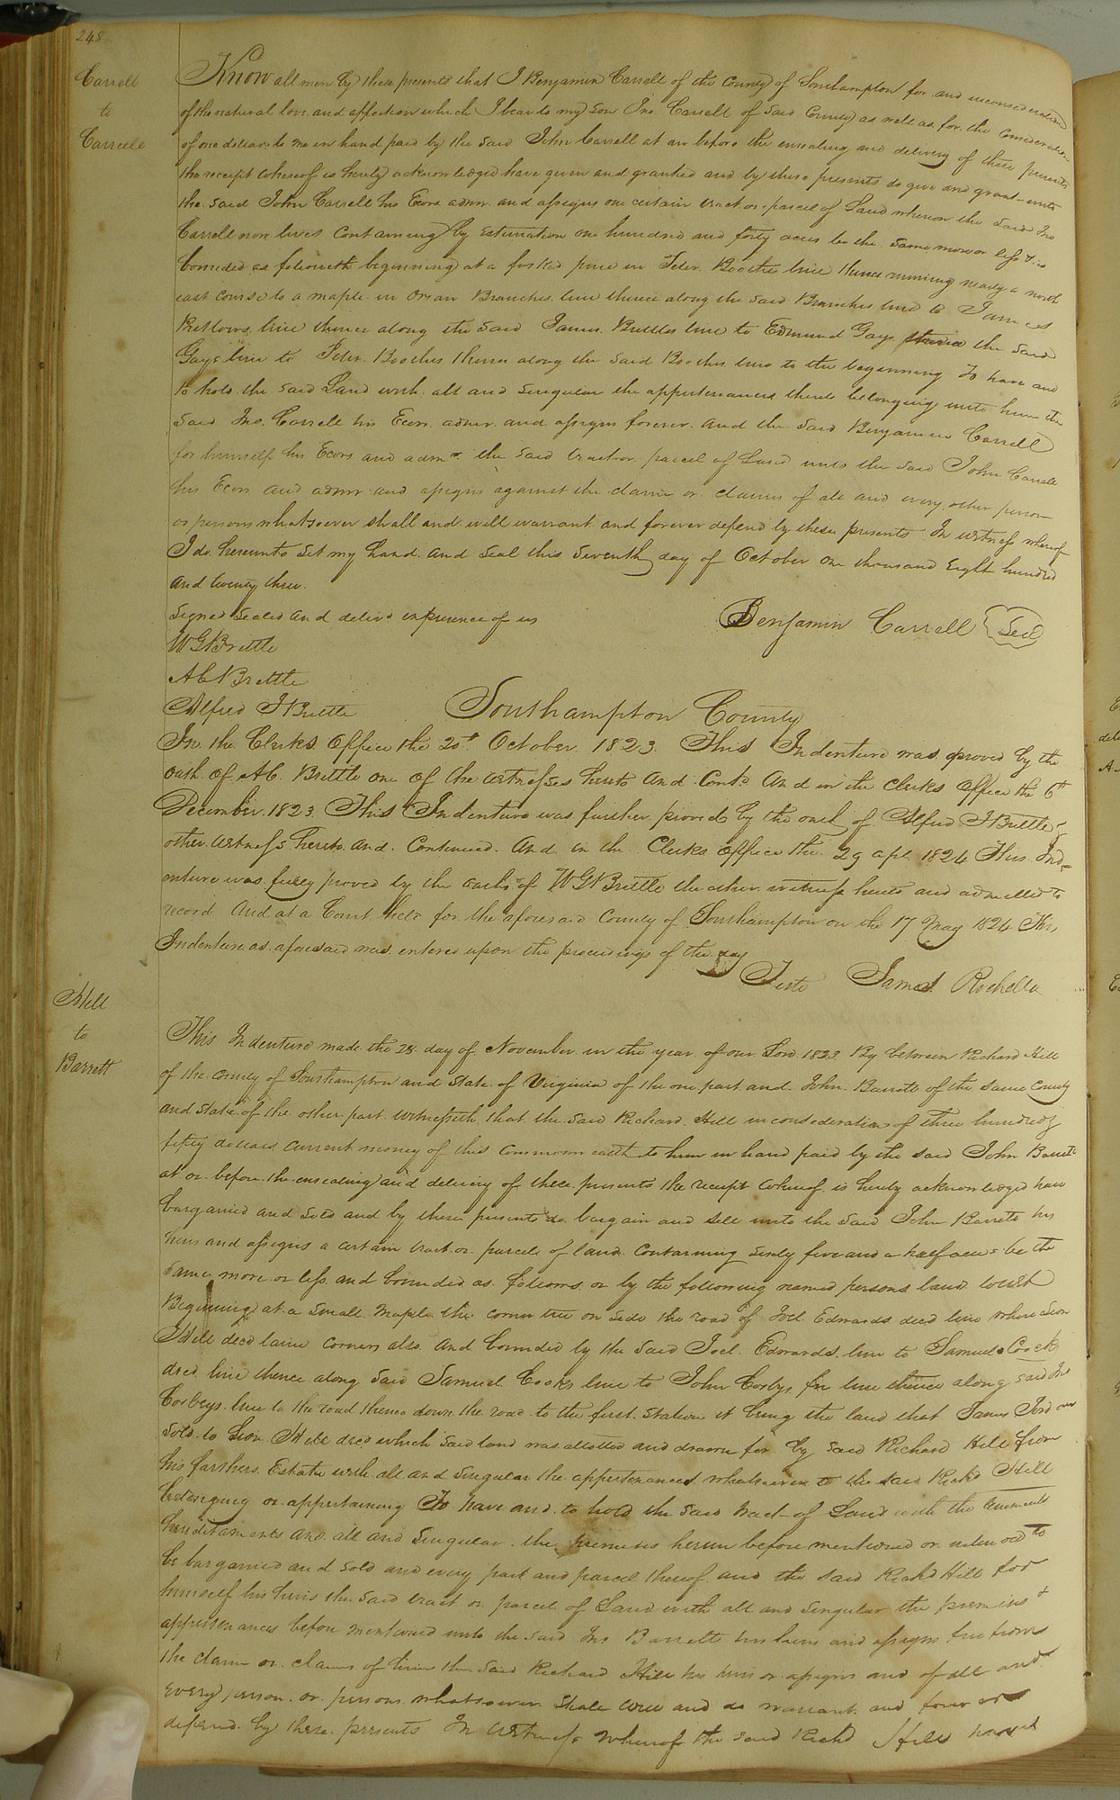 248
Carrell
to
Carrell
Know all men by these presents that I Benjamin Carrell of the County of Southampton for and inconsideration
of the natural love and affection which I bear to my son Jno Carrell of said County as well as for the consideration
of one dollar to me in hand paid by the said John Carrell at or before the ensealing and delivery of these presents
the receipt whereof is hereby acknowledged have given and granted and by these presents do give and grant unto
the said John Carrell his Exors admr and assigns one certain tract or parcel of Land whereon the said Jno
Carrell now lives containing by estimation one hundred and forty acres be the same more or less & is
bounded as followeth beginning at a forked pine in Peter Booths line thence running nearly a north
east course to a maple in Branches line thence along the said Branches line to James
Brittles line thence along the said James Brittles line to Edmund Gays thence the said
Gays line to Peter Boothes thence along the said Boothes line to the beginning To have and
to hold the said Land with all and singular the appurtenances thereto belonging unto him the
said Jno. Carrell his Exors. admr. and assigns forever. and the said Benjamin Carrell
for himself his Exors and admr. the said tract or parcel of Land unto the said John Carrell
his Exors and admr and assigns against the claim or claims of all and every other person
or persons whatsoever shall and will warrant and forever defend by these presents In witness whereof
I do hereunto set my hand and seal this seventh day of October one thousand Eight hundred
and twenty three.
Signed Sealed and delivd in presence of us
Benjamin Carrell Seal
W G Brittle
A C Brittle
Alfred J Brittle
Southampton County
In the Clerks Office the 20t October 1823. This Indenture was proved by the
oath of A C. Brittle one of the witnesses hereto and Contd. And in the clerks Office the 6th
December 1823 This Indenture was further proved by the oath of Alfred J Brittle
other witness hereto and Continued. And in the Clerks Office the 29 apl 1824 This Ind=
enture was fully proved by the oath of W G Brittle the other witness hereto and admitted to
record And at a Court held for the aforesaid County of Southampton on the 17 May 1824 This
Indenture as aforesaid was entered upon the proceedings of the day
Teste James Rochelle
Hill
to
Barrett
This Indenture made the 28 day of November in the year of our Lord 1823 By between Richard Hill
of the county of Southampton and state of Virginia of the one part and John Barrett of the same County
and state of the other part witnesseth that the said Richard Hill in consideration of three hundred &
fifty dollars current money of this commonwealth to him in hand paid by the said John Barrett
at or before the ensealing and delivery of these presents the receipt whereof is hereby acknowledged have
bargained and sold and by these presents do bargain and sell unto the said John Barrett his
heirs and assigns a certain tract or parcele of land containing sixty five and a half acres be the
same more or less and bounded as follows or by the following named persons land to wit
Beginning at a small maple the corner tree on side the road of Joel Edwards decd line where
Hill decd corners also and bounded by the said Joel Edwards line to Samuel Cook
decd line thence along said Samuel Cooks line to John Corbys line thence along said Jno
Corbeys line to the road thence down the road to the first station it being the land that James
sold to Hill decd which said land was allotted and drawn for by said Richard Hill from
his farthers Estate with all and singular the appertenances whatsoever to the said Richd Hill
belonging or appertaining To have and to hold the said tract of Land with the tenements
hereditaments and all and singular the premises herein before mentioned or intended to
be bargained and sold and every part and parcel thereof and the said Richd Hill for
himself his heirs the said tract or parcel of Land with all and singular the premises &
appurtenances before mentioned unto the said Jno Barrett his heirs and assigns free from
the claim or claims of him the said Richard Hill his heirs or assigns and of all and
every person or persons whatsoever shall will and do warrant and forever
defend by these presents In witness whereof the said Richd Hill